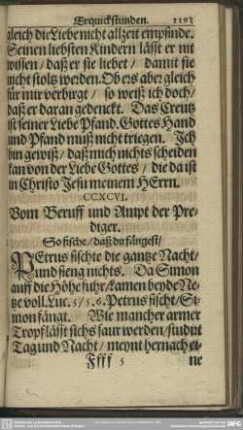 Erquickstunden. 1193
gleich die Liebe nicht allzeit empfinde.
Seinen liebsten Kindern lässt er nit
wissen / daß er sie liebet / damit sie
nicht stoltz werden. Ob ers aber gleich
für mir verbirgt / so weiß ich doch /
daß er daran gedenckt. Das Creutz
ist seiner Liebe Pfand. Gottes Hand
und Pfand muß nicht triegen. Ich
bin gewiß / daß mich nichts scheiden
kan von der Liebe Gottes / die da ist
in Christo Jesu meinem HErrn.
CCXCVI.
Vom Beruff und Ampt der Pre-
diger.
So fische / daß du fängest /
PEtrus fischte die gantze Nacht /
und fieng nichts. Da Simon
auff die Höhe fuhr / kamen beyde Ne-
tze voll. Luc. 5 / 5. 6. Petrus fischt / Si-
mon fängt. Wie mancher armer
Tropf lässt sichs saur werden / studirt
Tag und Nacht / meynt hernach ei-
Ffff 5 ne